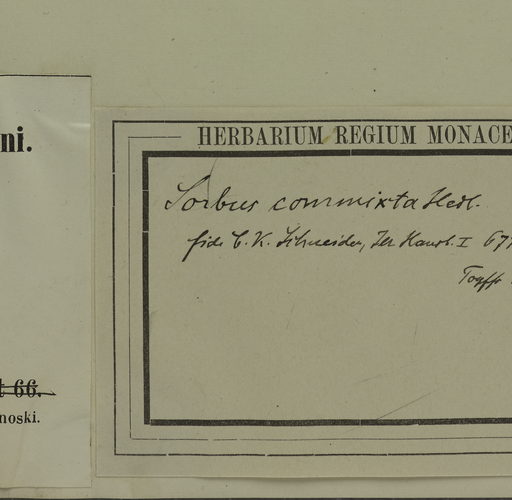 ni.
t 66.
noski.
HERBARIUM REGIUM MONACE
Sorbus commixta Hedl.
fide C. K. Schneider, Ill. Handb. I 67